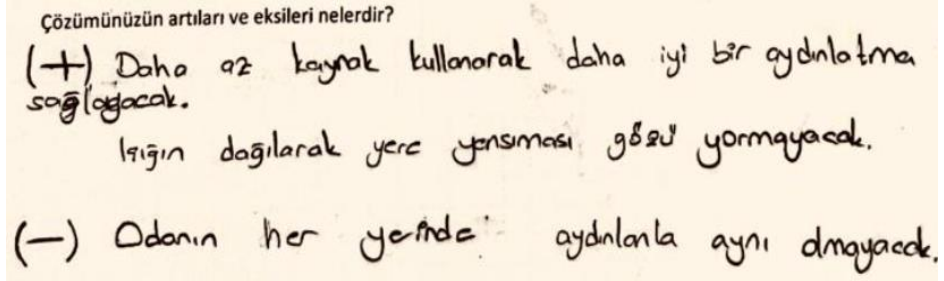 Çözümünüzün artıları ve eksileri nelerdir?
(+) Daha az kaynak kullanarak daha iyi bir aydınlatma
sağlayacak.
Işığın dağılarak yere yansıması gözü yormayacak.
(-) Odanın her yerinde aydınlanla aynı olmayacak.